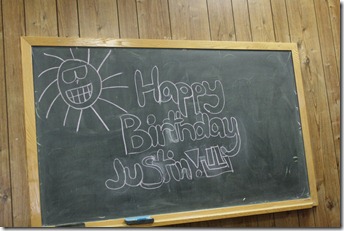 Happy
Birthday
Justin!!!!